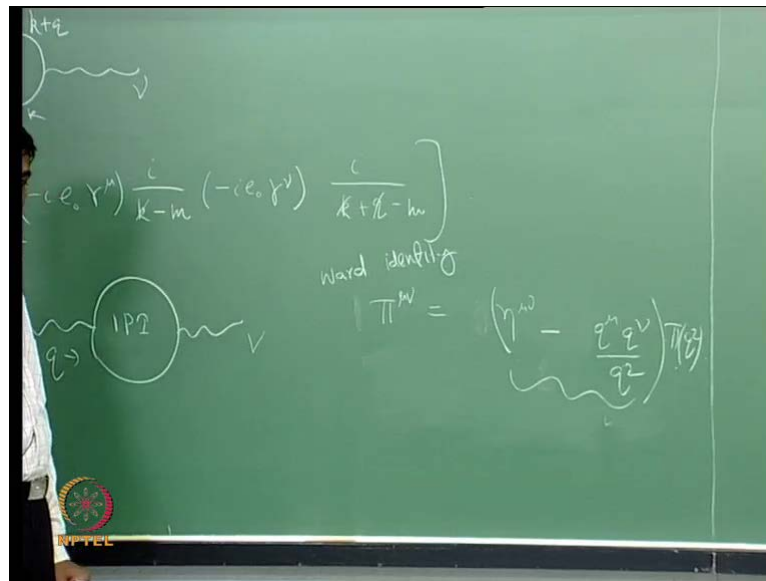 k+q
ν
k
(-ie₀γ^μ) i/(k̸-m) (-ie₀γ^ν) i/(k̸+q̸-m) ]
Ward identity
Π^{μν} = (η^{μν} - q^μ q^ν/q²) Π(q²)
1PI
q→
ν
NPTEL